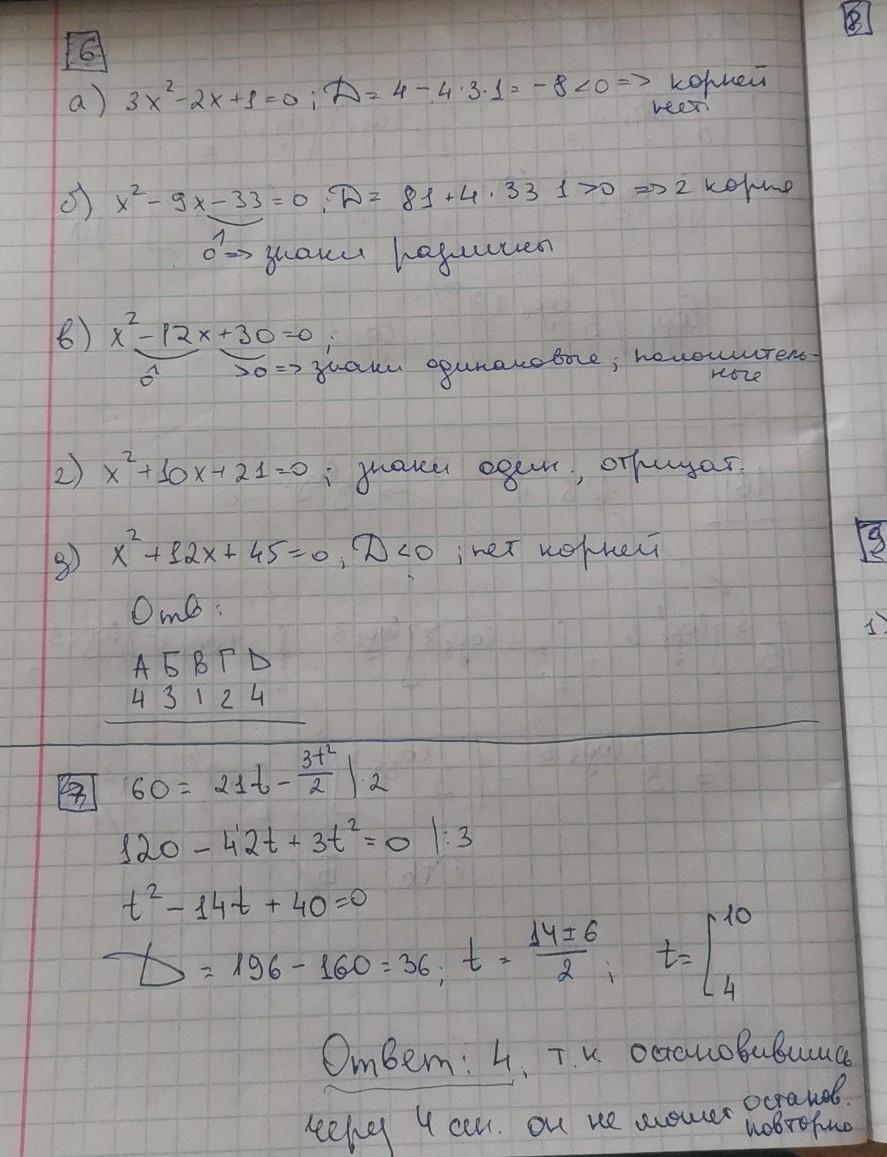 6
8
а) 3x² - 2x + 1 = 0 ; D = 4 - 4·3·1 = -8 < 0 => корней
нет.
б) x² - 9x - 33 = 0 ; D = 81 + 4·33 1 > 0 => 2 корня
0 => знаки различны
в) x² - 12x + 30 = 0 ;
0 >0 => знаки одинаковые ; положитель-
ные
г) x² + 10x + 21 = 0 ; знаки один., отрицат.
9
д) x² + 12x + 45 = 0 ; D < 0 ; нет корней
Отв :
1)
А Б В Г D
4 3 1 2 4
7 60 = 21t - 3t²/2 |·2
120 - 42t + 3t² = 0 |:3
t² - 14t + 40 = 0
D = 196 - 160 = 36 ; t = 14±6/2 ; t = [ 10 4
Ответ: 4, т.к. остановившись
через 4 сек. он не может останов.
повторно